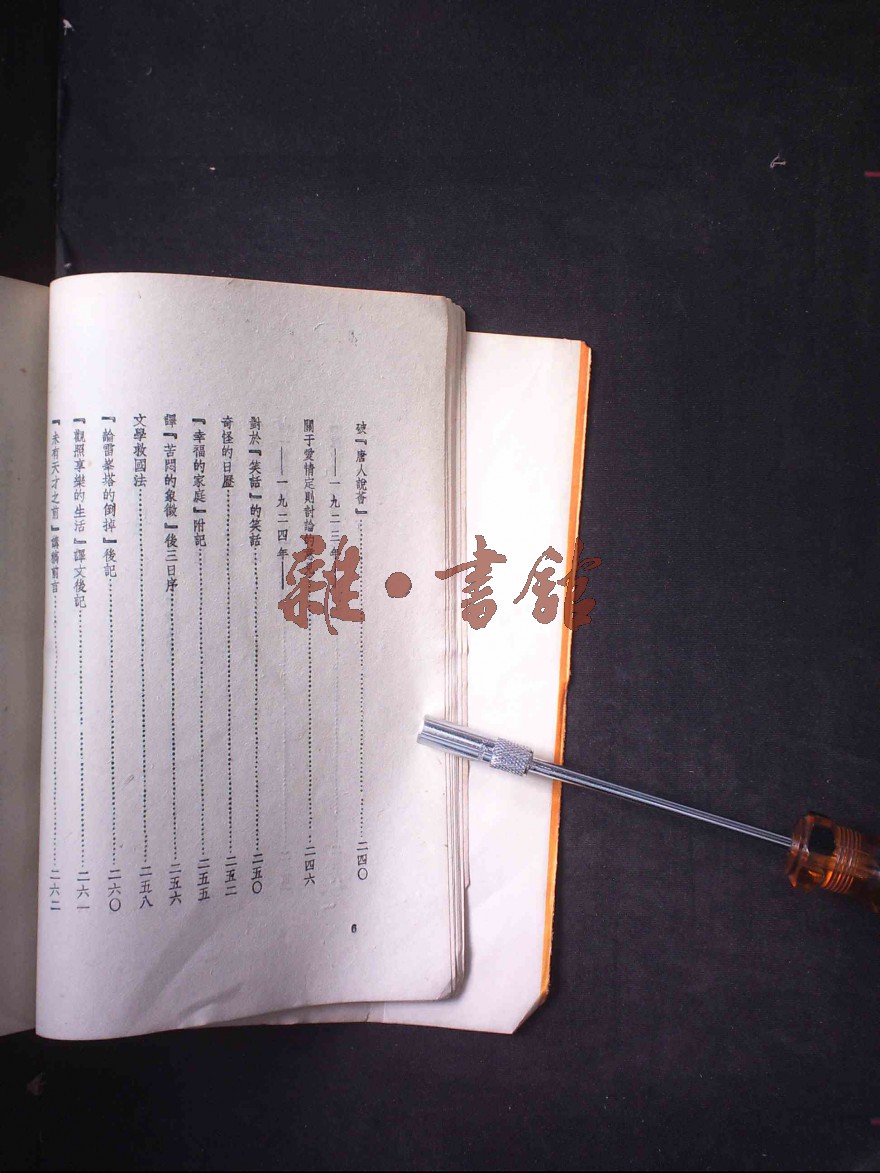 破『唐人說薈』……二四〇
——一九二三年
關于愛情定則討論的……二四六
——一九二四年——
對於『笑話』的笑話……二五〇
奇怪的日歷……二五二
『幸福的家庭』附記……二五五
譯『苦悶的象徵』後三日序……二五六
文學救國法……二五八
『論雷峯塔的倒掉』後記……二六〇
『觀照享樂的生活』譯文後記……二六一
『未有天才之前』講稿前言……二六二
6
雜·書館